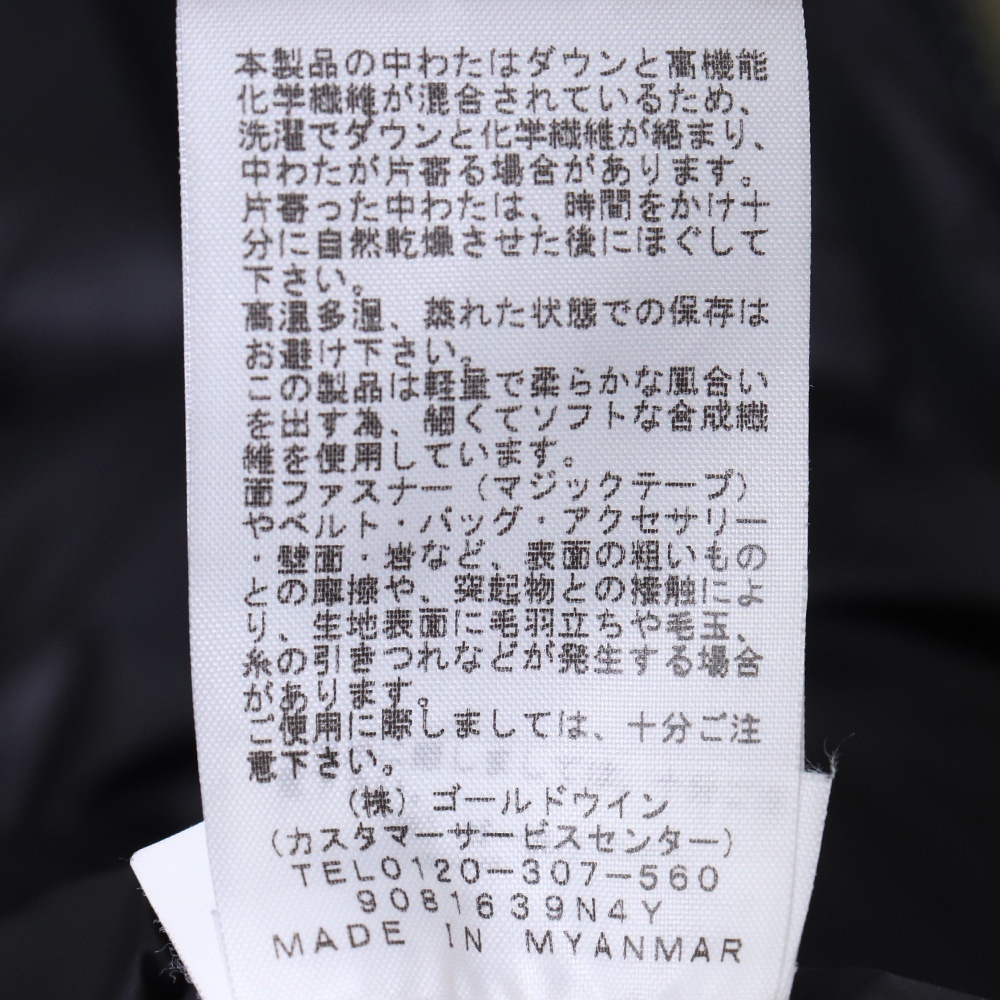 本製品の中わたはダウンと高機能
化学繊維が混合されているため、
洗濯でダウンと化学繊維が絡まり、
中わたが片寄る場合があります。
片寄った中わたは、時間をかけ十
分に自然乾燥させた後にほぐして
下さい。
高温多湿、蒸れた状態での保存は
お避け下さい。
この製品は軽量で柔らかな風合い
を出す為、細くてソフトな合成繊
維を使用しています。
面ファスナー（マジックテープ）
やベルト・バッグ・アクセサリー
・壁面・岩など、表面の粗いもの
との摩擦や、突起物との接触によ
り、生地表面に毛羽立ちや毛玉、
糸の引きつれなどが発生する場合
があります。
ご使用に際しましては、十分ご注
意下さい。
（株）ゴールドウイン
（カスタマーサービスセンター）
TEL0120-307-560
9081639N4Y
MADE IN MYANMAR